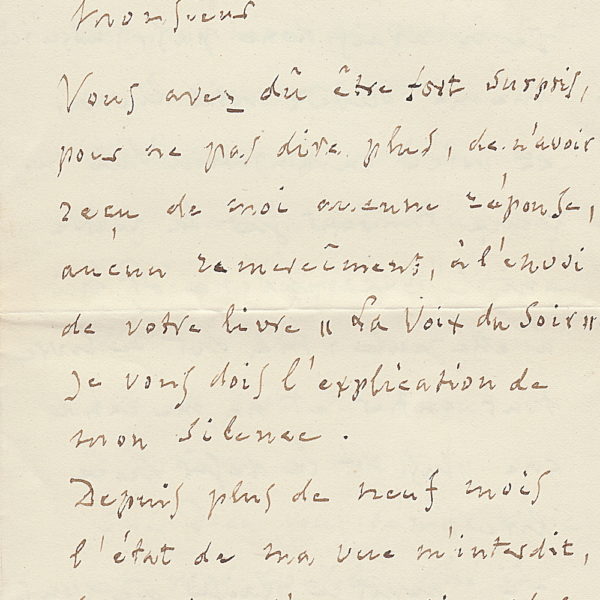 Monsieur
Vous avez dû être fort surpris,
pour ne pas dire plus, de n'avoir
reçu de moi aucune réponse,
aucun remerciîment, à l'envoi
de votre livre " La Voix du Soir "
Je vous dois l'explication de
mon silence.
Depuis plus de neuf mois
l'état de ma vue m'interdit,